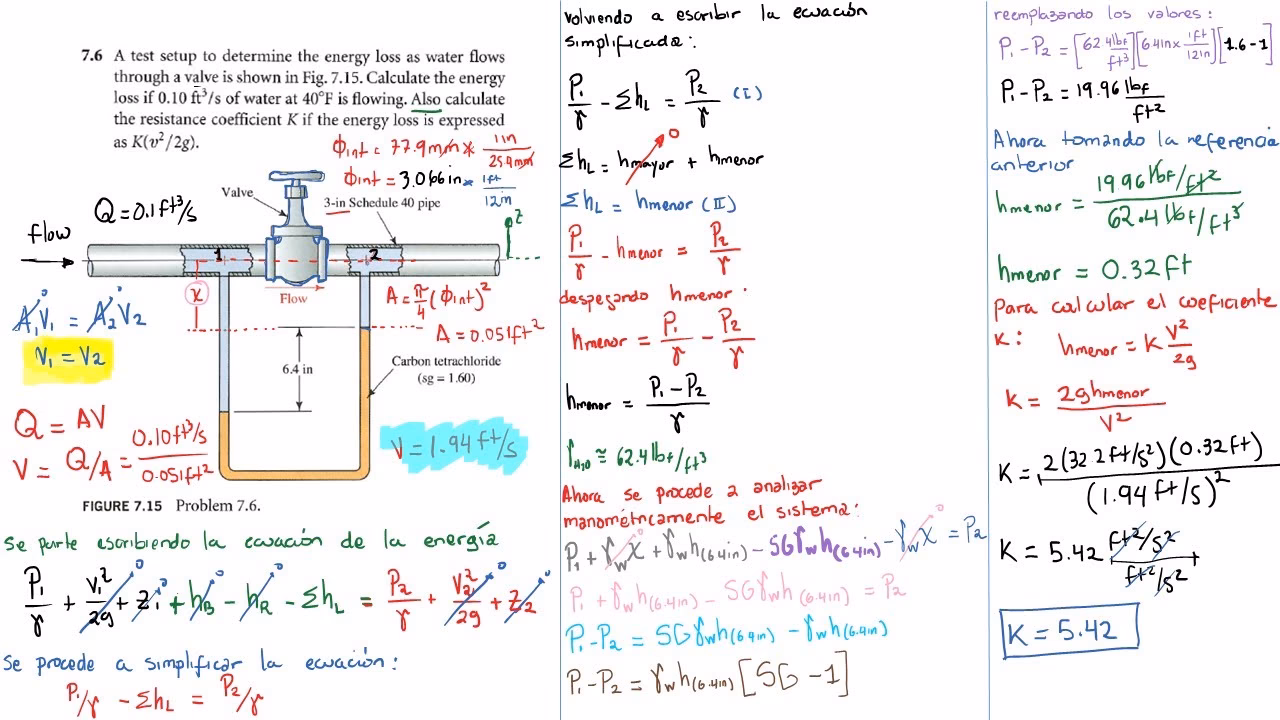 7.6 A test setup to determine the energy loss as water flows
through a valve is shown in Fig. 7.15. Calculate the energy
loss if 0.10 ft³/s of water at 40°F is flowing. Also calculate
the resistance coefficient K if the energy loss is expressed
as K(v²/2g).
ϕint = 77.9mm × 1in/25.4mm
ϕint = 3.066in × 1ft/12in
Valve
3-in Schedule 40 pipe
Q=0.1ft³/s
z
flow
1
2
x
Flow
A = π/4 (ϕint)²
A = 0.051ft²
A₁V₁ = A₂V₂
V₁ = V₂
6.4 in
Carbon tetrachloride
(sg = 1.60)
Q = AV
V = Q/A = 0.10ft³/s / 0.051ft²
V = 1.94 ft/s
FIGURE 7.15 Problem 7.6.
Se parte escribiendo la ecuación de la energía
P₁/γ + V₁²/2g + Z₁ + hB - hR - ΣhL = P₂/γ + V₂²/2g + Z₂
Se procede a simplificar la ecuación:
P₁/γ - ΣhL = P₂/γ
volviendo a escribir la ecuación
simplificada:
P₁/γ - ΣhL = P₂/γ (I)
ΣhL = hmayor + hmenor
ΣhL = hmenor (II)
P₁/γ - hmenor = P₂/γ
despegando hmenor:
hmenor = P₁/γ - P₂/γ
hmenor = P₁ - P₂/γ
γH₂O ≈ 62.4 lbf/ft³
Ahora se procede a analizar
manométricamente el sistema:
P₁ + γw x + γw h(6.4in) - SGγw h(6.4in) - γw x = P₂
P₁ + γw h(6.4in) - SGγw h(6.4in) = P₂
P₁-P₂ = SGγw h(6.4in) - γw h(6.4in)
P₁-P₂ = γw h(6.4in) [SG - 1]
reemplazando los valores:
P₁ - P₂ = [62.4 lbf/ft³][6.4in x 1ft/12in][1.6-1]
P₁-P₂ = 19.96 lbf/ft²
Ahora tomando la referencia
anterior
hmenor = 19.96 lbf/ft² / 62.4 lbf/ft³
hmenor = 0.32 ft
Para calcular el coeficiente
K: hmenor = K V²/2g
K = 2ghmenor/V²
K = 2(32.2ft/s²)(0.32ft)/(1.94ft/s)²
K = 5.42 ft²/s²/ft²/s²
K = 5.42